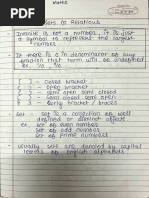 NOTES
Sets & Relations
- Infinite is not a number, it is just
a symbol to represent the largest
number
- If there is 0 in denominator of any
fraction that term will be undefined
Ex: 1/0
[ ] - Closed bracket
( ) - Open bracket
[ ) - semi open semi closed
( ] - semi closed semi open
{ } - Curly braces / braces
- Set - is a collection of well
defined or distinct objects
Ex: set of even number
Set of odd number
Set of prime number
- Usually sets are denoted by capital
letters of english alphabets